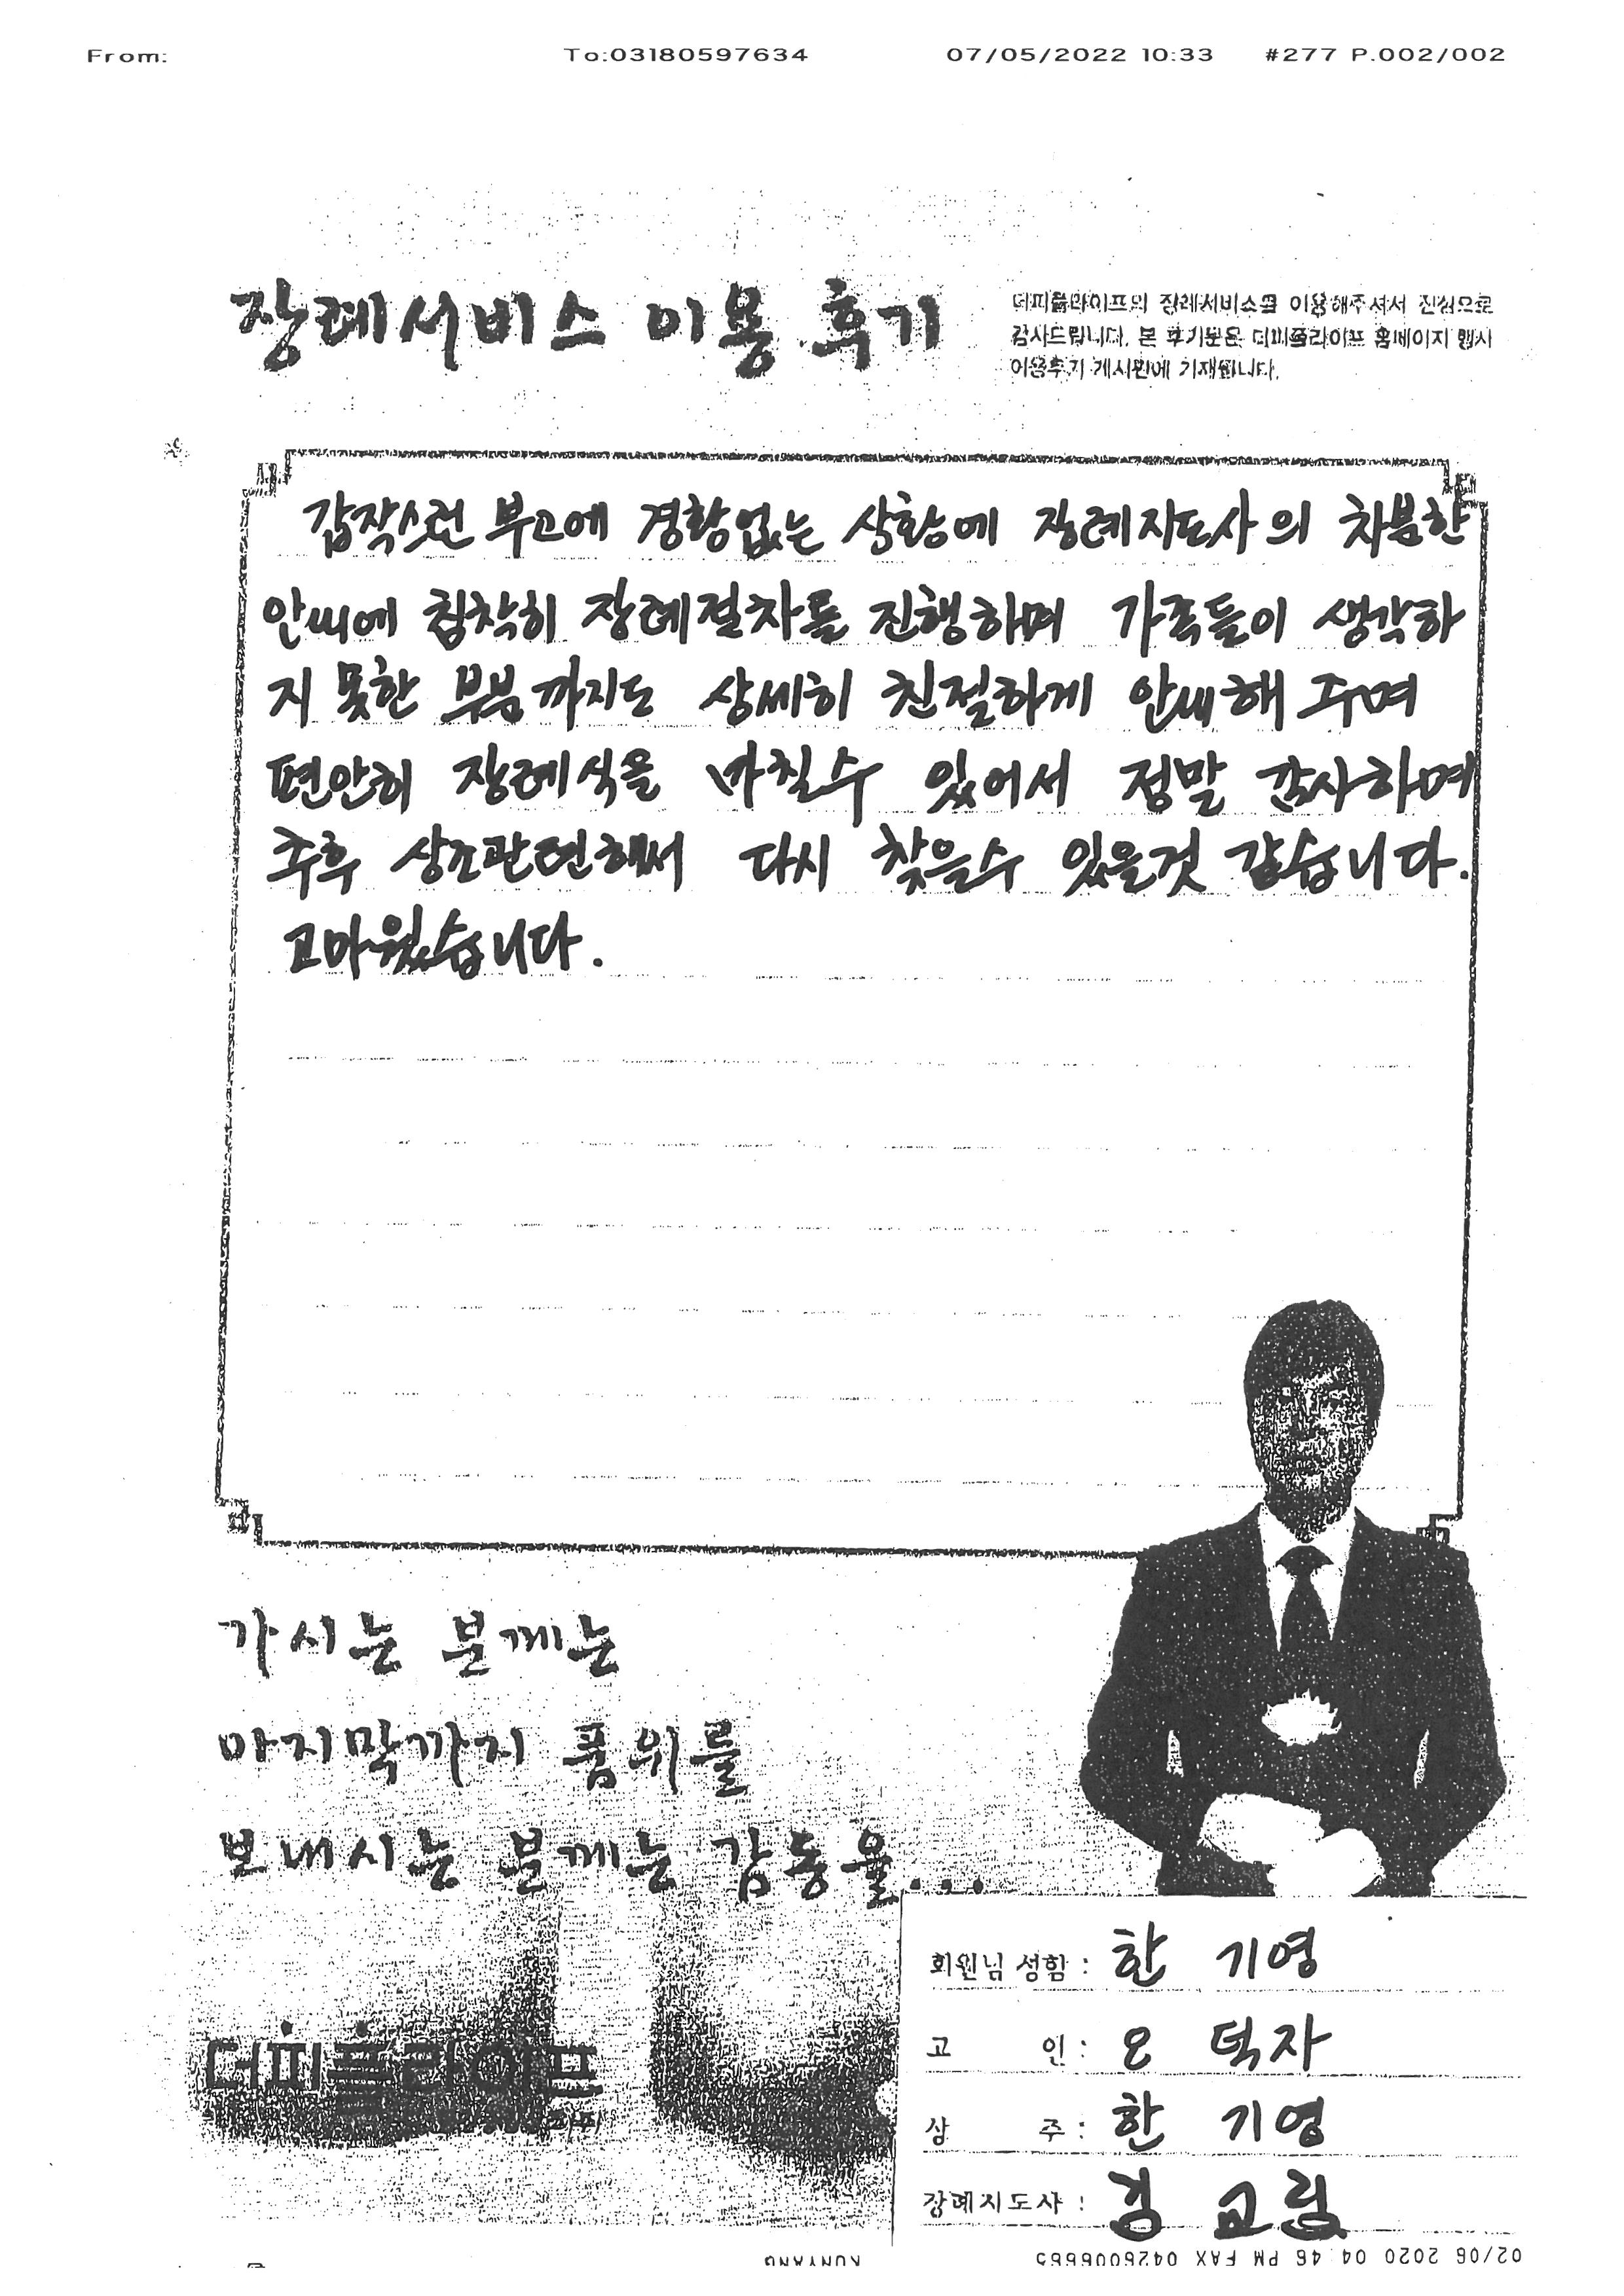 From: To:03180597634 07/05/2022 10:33 #277 P.002/002
장례서비스 이용 후기
더피플라이프의 장례서비스를 이용해주셔서 진심으로
감사드립니다. 본 후기문은 더피플라이프 홈페이지 행사
이용후기 게시판에 기재됩니다.
갑작스런 부고에 경황없는 상황에 장례지도사의 차분한
안내에 침착히 장례절차를 진행하며 가족들이 생각하
지 못한 부분까지도 상세히 친절하게 안내해 주며
편안히 장례식을 마칠수 있어서 정말 감사하며
추후 상조관련해서 다시 찾을수 있을것 같습니다.
고마웠습니다.
가시는 분께는
마지막까지 품위를
보내시는 분께는 감동을...
더피플라이프
회원님 성함 : 한 기영
고 인 : 오 덕자
상 주 : 한 기영
장례지도사 : 김 교림
02/06 2020 04:46 PM FAX 0426006665